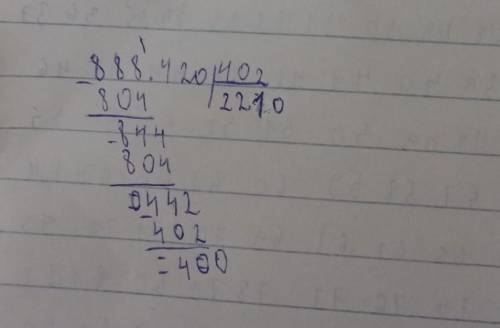 888.420 402
- 804 2210
- 844
804
0442
- 402
= 400